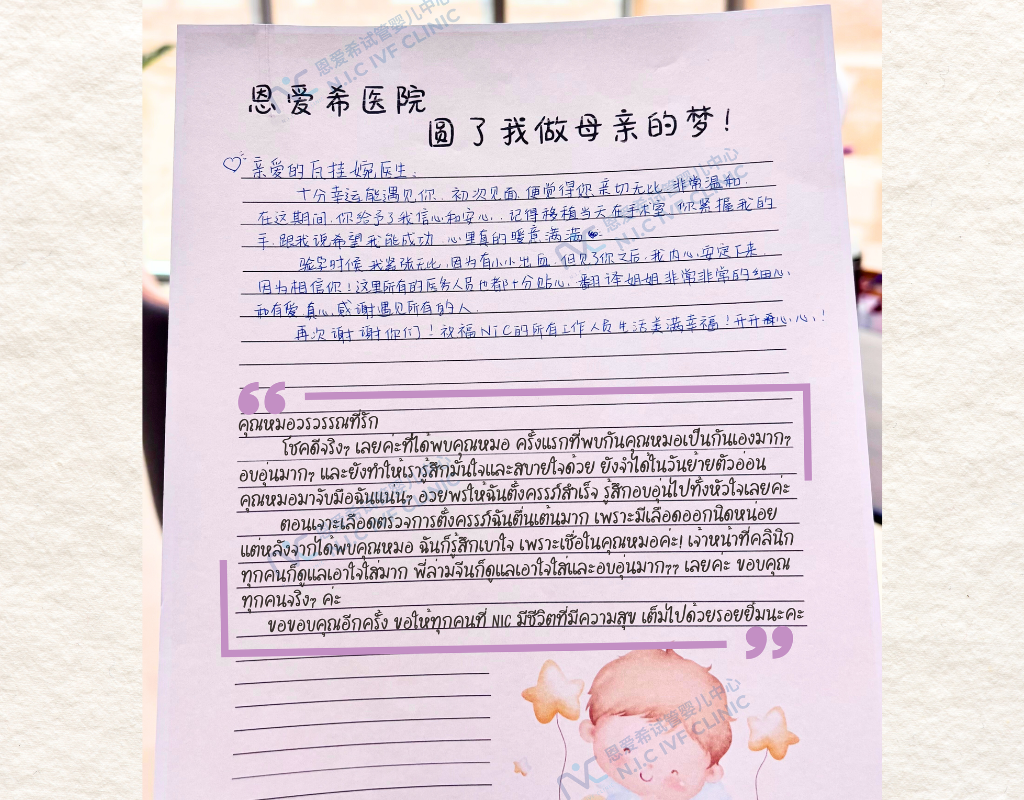 恩爱希医院
圆了我做母亲的梦!
亲爱的瓦挂婉医生:
十分幸运能遇见你.初次见面,便觉得您亲切无比,非常温和.
在这期间,你给予了我信心和安心..记得移植当天在手术室,你紧握我的
手,跟我说希望我能成功,心里真的暖意满满
验孕时候,我紧张无比,因为有小小出血,但见了你之后,我内心安定下来.
因为相信你!这里所有的医务人员也都十分贴心,翻译姐姐非常非常的细心,
和有爱,真心感谢遇见所有的人.
再次谢谢你们!祝福NIC的所有工作人员生活美满幸福!开开心心!
คุณหมอวรวรรณที่รัก
โชคดีจริงๆ เลยค่ะที่ได้พบคุณหมอ ครั้งแรกที่พบกันคุณหมอเป็นกันเองมากๆ
อบอุ่นมากๆ และยังทำให้เรารู้สึกมั่นใจและสบายใจด้วย ยังจำได้ในวันย้ายตัวอ่อน
คุณหมอมาจับมือฉันแน่นๆ อวยพรให้ฉันตั้งครรภ์สำเร็จ รู้สึกอบอุ่นไปทั้งหัวใจเลยค่ะ
ตอนเจาะเลือดตรวจการตั้งครรภ์ฉันตื่นเต้นมาก เพราะมีเลือดออกนิดหน่อย
แต่หลังจากได้พบคุณหมอ ฉันก็รู้สึกเบาใจ เพราะเชื่อในคุณหมอค่ะ! เจ้าหน้าที่คลินิก
ทุกคนก็ดูแลเอาใจใส่มาก พี่ล่ามจีนก็ดูแลเอาใจใส่และอบอุ่นมากๆๆ เลยค่ะ ขอบคุณ
ทุกคนจริงๆ ค่ะ
ขอขอบคุณอีกครั้ง ขอให้ทุกคนที่ NIC มีชีวิตที่มีความสุข เต็มไปด้วยรอยยิ้มนะคะ
恩爱希试管婴儿中心
N.I.C IVF CLINIC